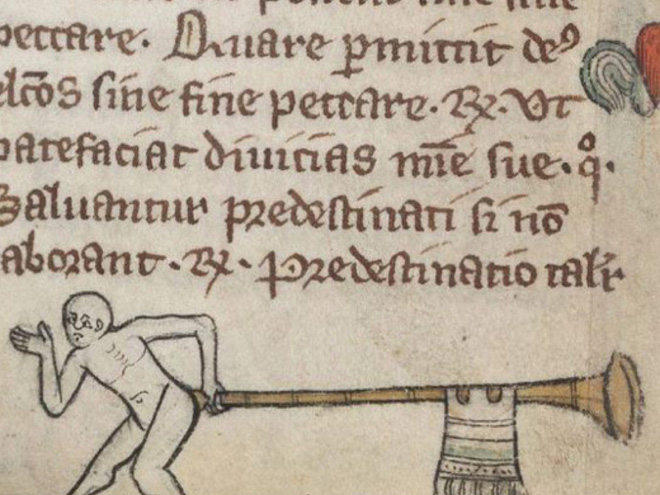 peccare. Quare ꝑmittit deꝰ
elc̄os sine fine peccare. ℞. Ut
patefaciat diuicias mīe sue. q̊.
Saluantur predestinati si nō
aborant. ℞. Predestinatio